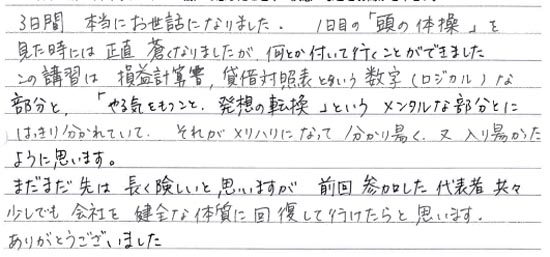 3日間 本当にお世話になりました. 1日目の「頭の体操」を
見た時には 正直 蒼くなりましたが 何とか付いて行くことができました
この講習は 損益計算書, 貸借対照表という 数字(ロジカル)な
部分と, 「やる気をもつこと. 発想の転換」という メンタルな部分とに
はっきり分かれていて. それがメリハリになって 分かり易く. 又 入り易かった
ように思います。
まだまだ 先は 長く険しいと思いますが 前回 参加した 代表者 共々
少しでも 会社を 健全な体質に回復して行けたらと 思います.
ありがとうございました